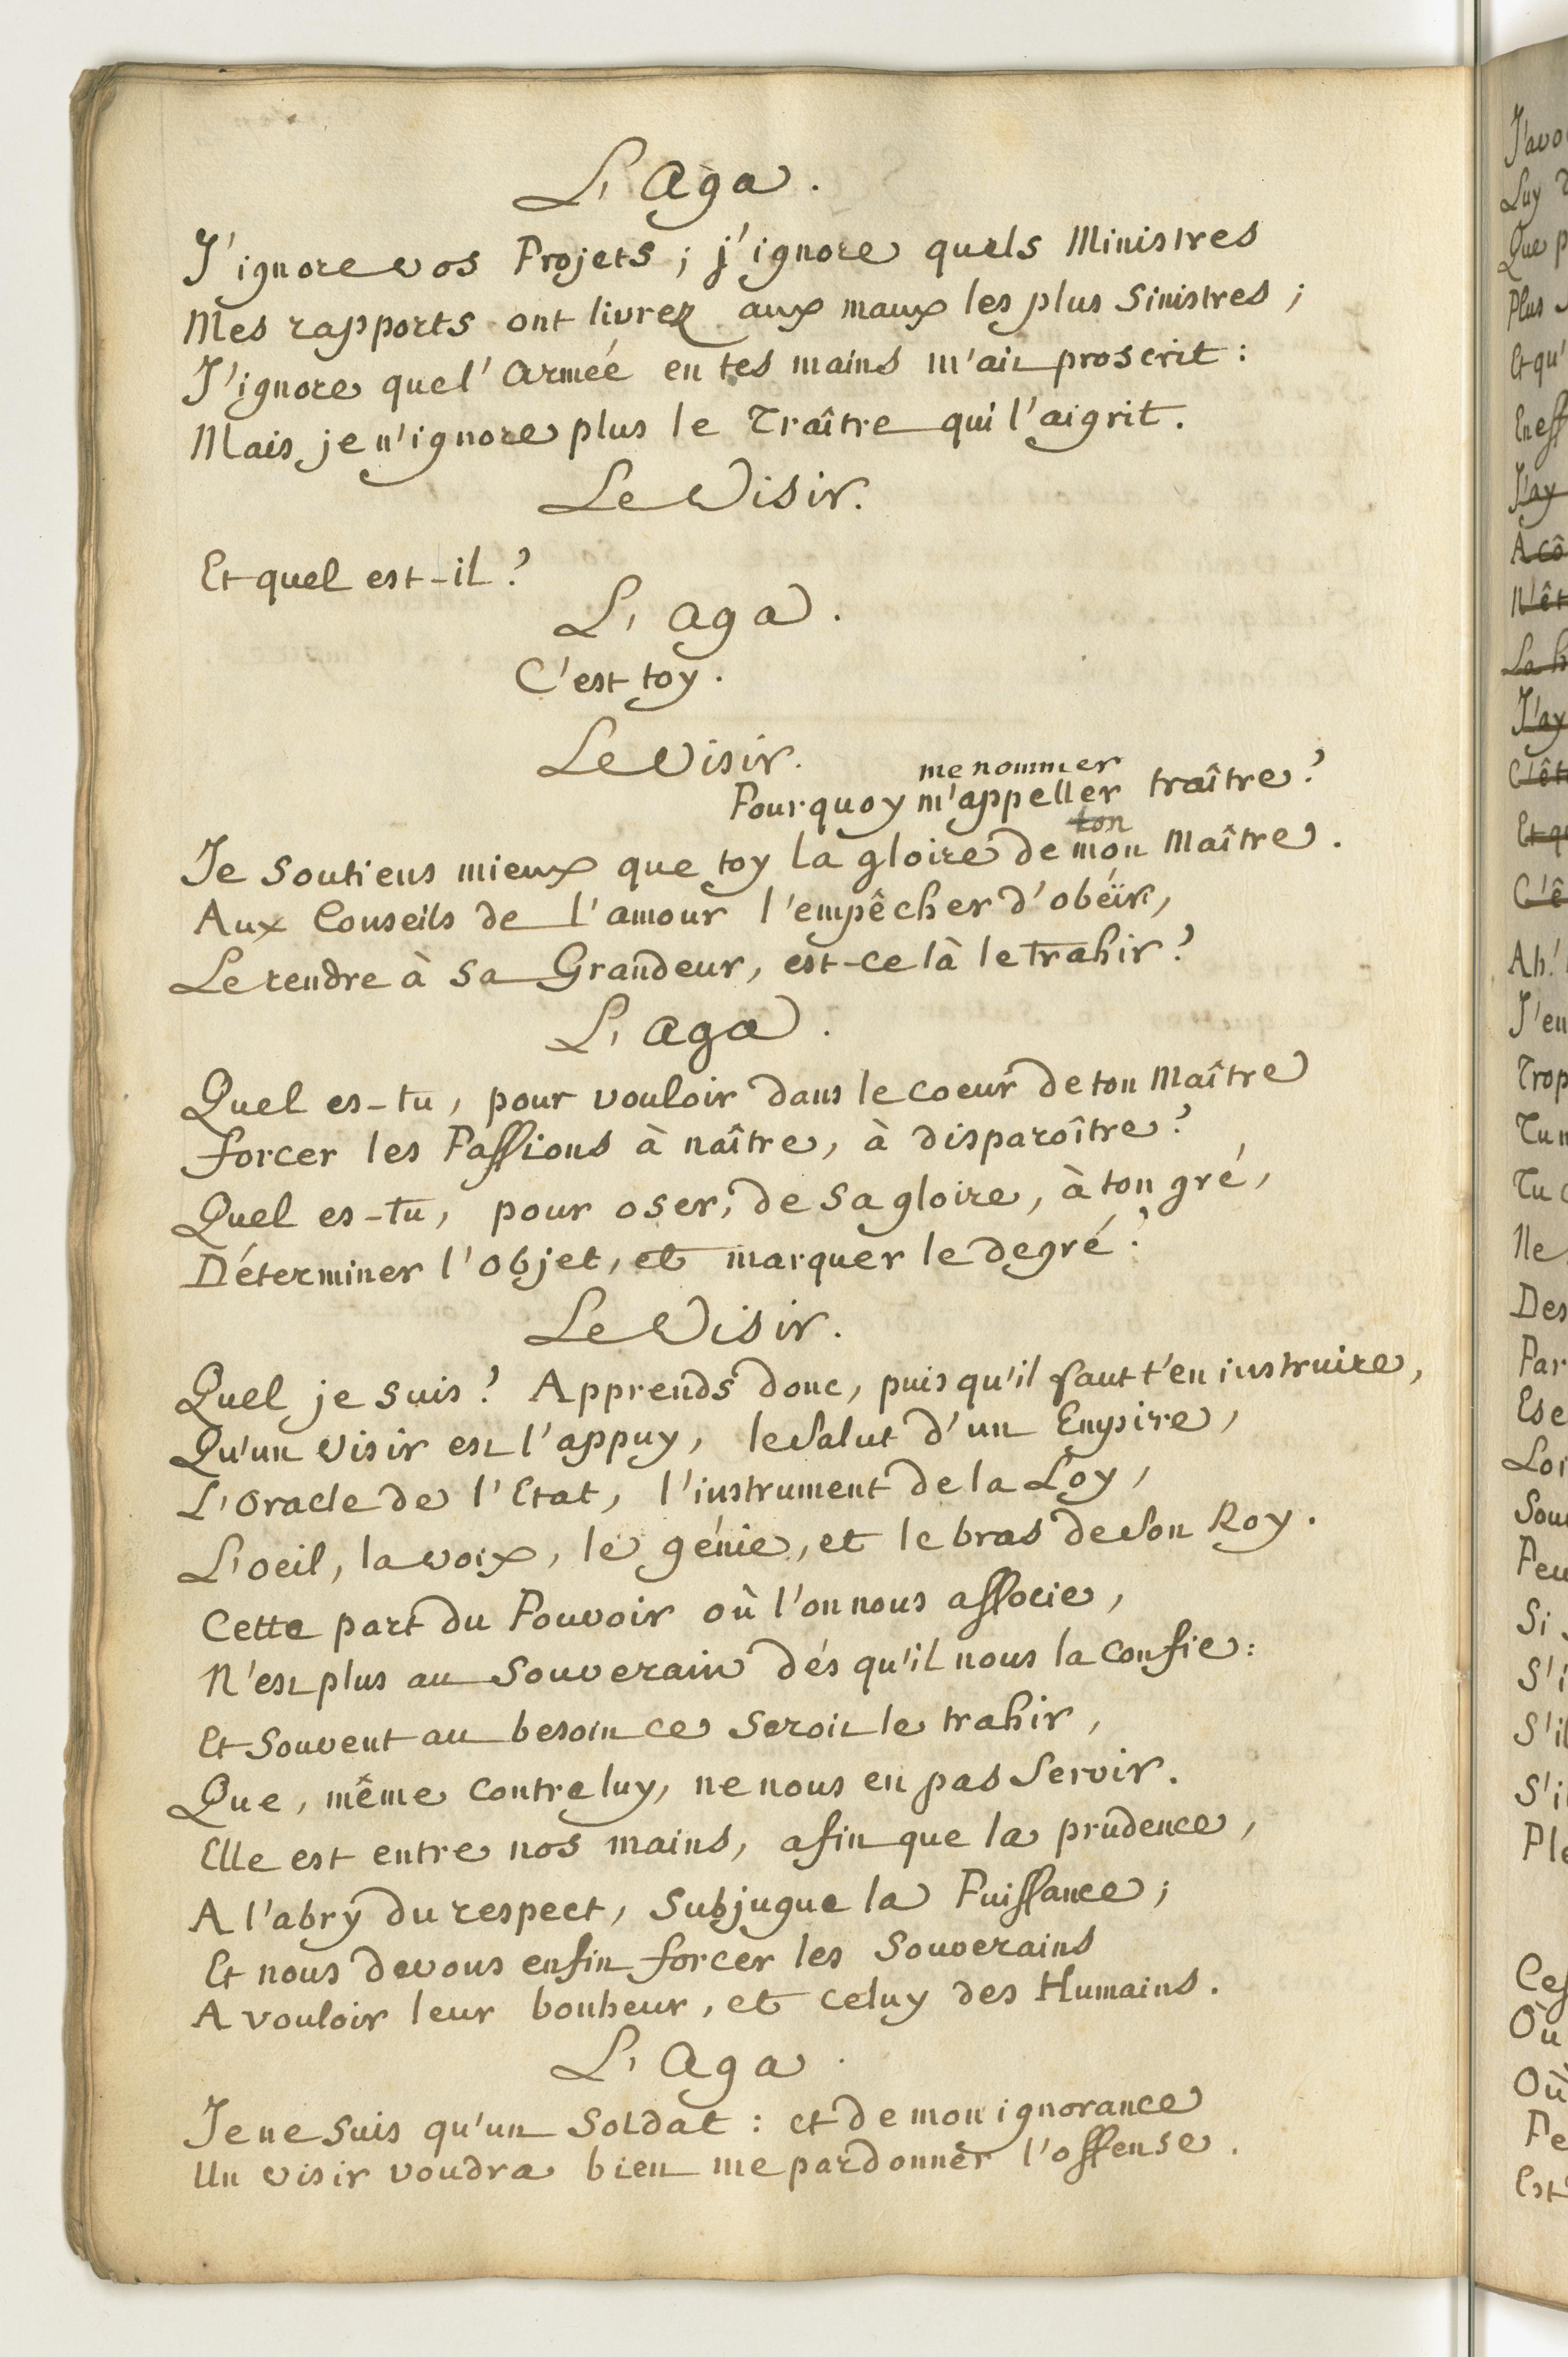 L'Aga.
J'ignore vos Projets; j'ignore quels Ministres
Mes rapports ont livrez aux maux les plus sinistres;
J'ignore que l'Armée en tes mains m'ait proscrit:
Mais je n'ignore plus le Traître qui l'aigrit.
Le Visir.
Et quel est-il?
L'aga.
C'est toy.
Le Visir.
me nommer
Pourquoy m'appeller traître?
ton
Je soutiens mieux que toy la gloire de mon Maître.
Aux Conseils de l'amour l'empêcher d'obéir,
Le rendre à sa Grandeur, est-ce là le trahir?
L'aga.
Quel es-tu, pour vouloir dans le coeur de ton Maître
forcer les Passions à naître, à disparoître?
Quel es-tu, pour oser, de sa gloire, à ton gré,
Déterminer l'objet, et marquer le degré?
Le Visir.
Quel je suis? Apprends donc, puisqu'il faut t'en instruire,
Qu'un visir est l'appuy, le salut d'un Empire,
L'oracle de l'Etat, l'instrument de la Loy,
L'oeil, la voix, le génie, et le bras de son Roy.
Cette part du Pouvoir où l'on nous associe,
N'est plus au Souverain dés qu'il nous la confie:
Et souvent au besoin ce seroit le trahir,
Que, même contre luy, ne nous en pas servir.
Elle est entre nos mains, afin que la prudence,
A l'abry du respect, subjugue la Puissance;
Et nous devons enfin forcer les Souverains
A vouloir leur bonheur, et celuy des Humains.
L'Aga.
Je ne suis qu'un Soldat: et de mon ignorance
Un visir voudra bien me pardonner l'offense.
J'avo
Luy
Que p
Plus
Et qu'
En eff
J'ay
A cô
N'êt
La h
J'ay
C'êt
Et q
C'ê
Ah!
J'en
Trop
Tu n
Tu
Ne
Des
Par
Ese
Loi
Sou
Peu
Si
S'i
S'il
S'i
Ple
Ces
Où
Où
Pe
Est